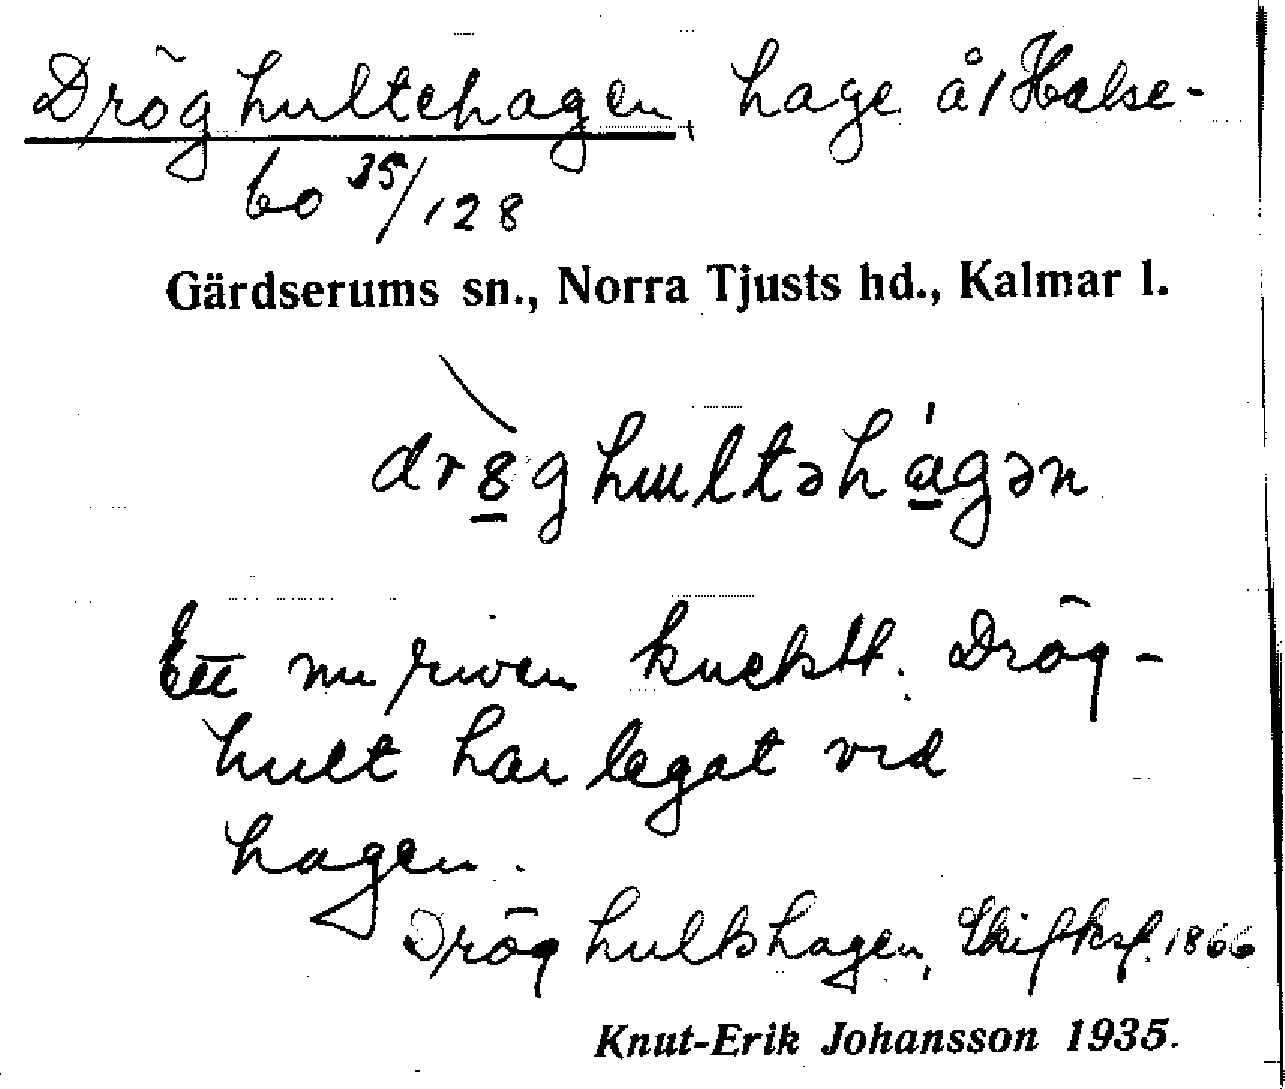 Dröghultehagen, hage å/ Hälse-
bo 35/128
Gärdserums sn., Norra Tjusts hd., Kalmar l.
Ett nu riven
Drög-
hult har legat vid
hagen.
Dröghultshagen, 1866
Knut-Erik Johansson 1935.